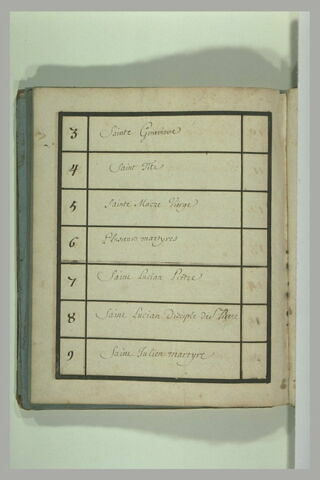 3 Sainte Genevieve
4 Saint Tite
5 Sainte Macre Vierge
6 Plusieurs martyres
7 Saint Lucian Pretre
8 Saint Lucian Disciple de St Pierre
9 Saint Julien martyre